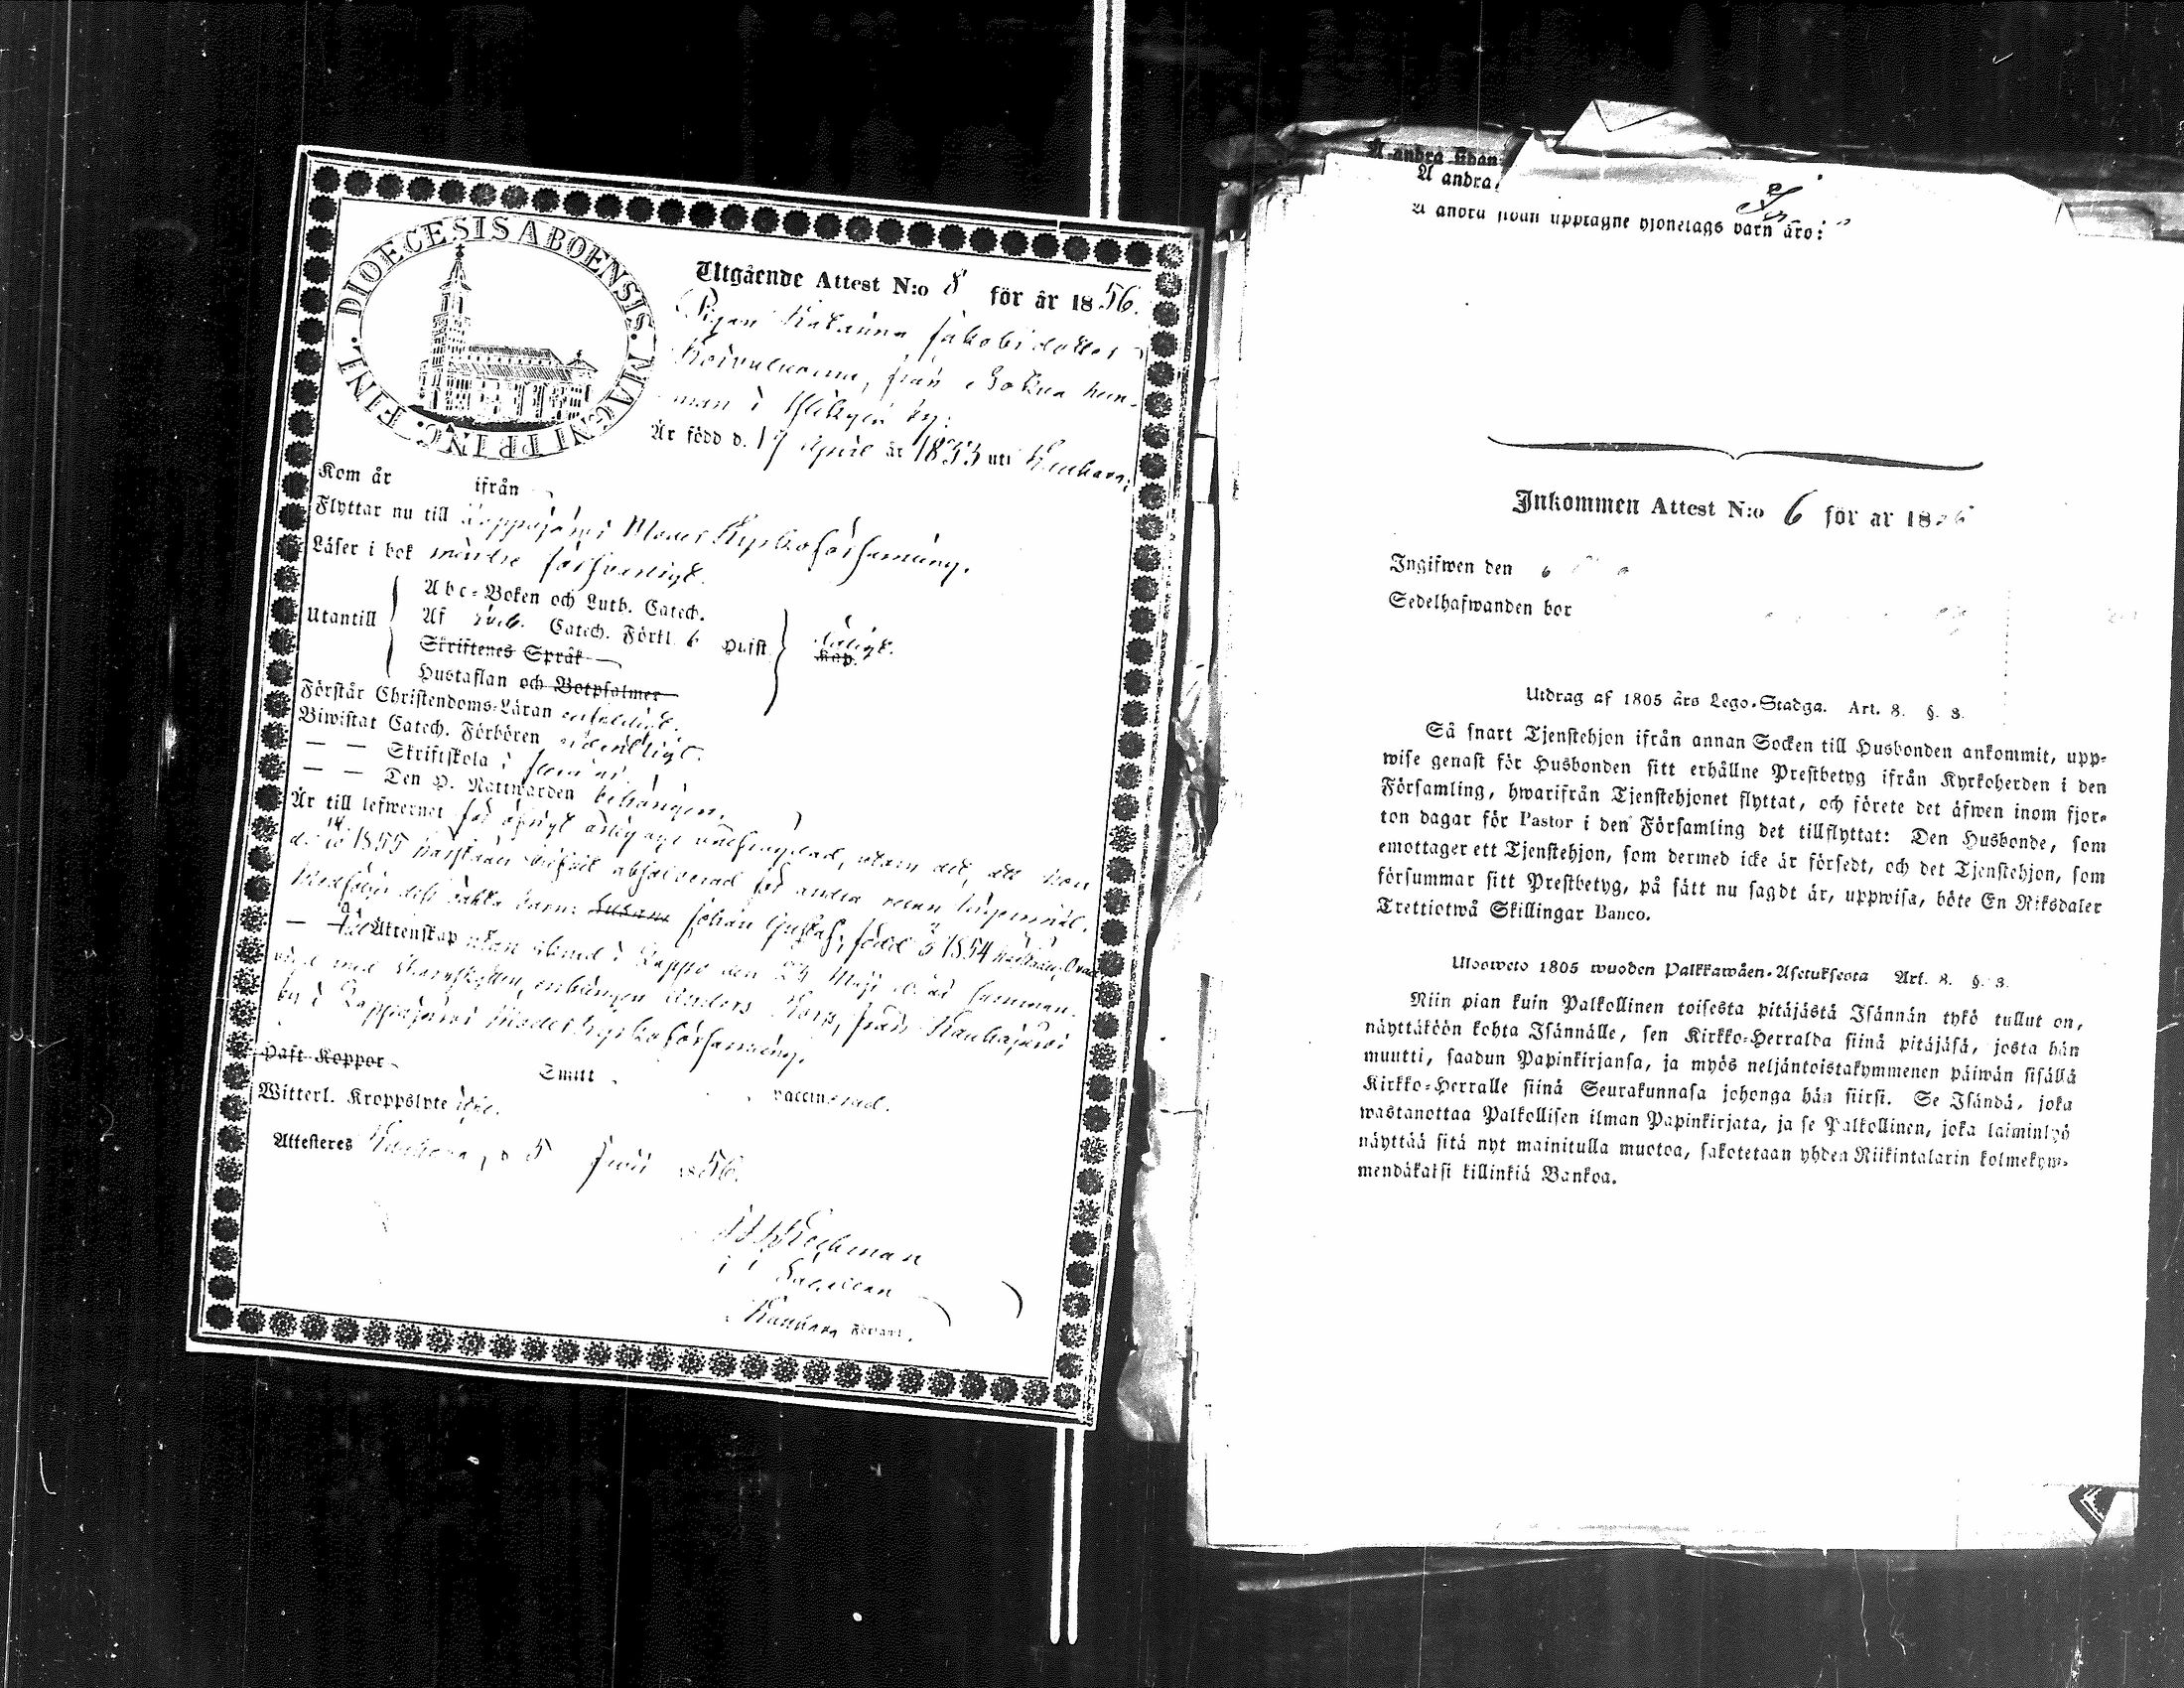 DIOECESIS ABOENSIS. MAGNI PRINC. FINL.
Utgående Attest N:o 8 för år 1856.
Pigan Katarina Jakobsdotter
från hem-
man i by:
Är född d. 17 April år 1833 uti Kauhava;
Kom år ifrån
Flyttar nu till Lappajärvi Moder Kyrkoförsamling.
Läser i bok mindre försvarligt.
Utantill
Abc-Boken och Luth. Catech.
Af Sveb. Catech. Förkl. 6 Hufst.
Skriftenes Språk
Hustaflan och Botpsalmer
dåligt.
Kap.
Förstår Christendoms-Läran enfaldigt.
Biwistat Catech. Förhören ordentligt.
— — Skriftskola i
— — Den H. Nattwarden behörigen.
Är till lefwernet för öfrigt ärlig och välfrejdad, utom det, att hon
d. 14/10 1855 absolverad för andra resan lägersmål.
Medföljer dess oäkta barn: Johan Gustaf, född 1854
— Till Äktenskap utan i Lappo den 24 Maji d. år samman-
med enkлingen Anders Korp, från Kauhajärvi
by i Lappajärvi Moderkyrkoförsamling.
Haft Koppor
Smitt
vaccinerad.
Witterl. Kroppslyte
Attesteres Kauhava, d 5 Juni 1856.
Kauhava Församl.
Å andra sidan
Å andra
Å andra sidan upptagne hjonelags barn äro:
Inkommen Attest N:o 6 för år 1856
Ingifwen den
Sedelhafwanden bor
Utdrag af 1805 års Lego-Stadga. Art. 8. §. 3.
Så snart Tjenstehjon ifrån annan Socken till Husbonden ankommit, upp-
wise genast för Husbonden sitt erhållne Prestbetyg ifrån Kyrkoherden i den
Församling, hwarifrån Tjenstehjonet flyttat, och förete det äfwen inom fjor-
ton dagar för Pastor i den Församling det tillflyttat: Den Husbonde, som
emottager ett Tjenstehjon, som dermed icke är försedt, och det Tjenstehjon, som
försummar sitt Prestbetyg, på sätt nu sagdt är, uppwisa, böte En Riksdaler
Trettiotwå Skillingar Banco.
Ulosweto 1805 wuoden Palkkawäen-Asetuksesta Art. 8. §. 3.
Niin pian kuin Palkollinen toisesta pitäjästä Isännän tykö tullut on,
näyttäköön kohta Isännälle, sen Kirkko-Herralda siinä pitäjäsä, josta hän
muutti, saadun Papinkirjansa, ja myös neljäntoistakymmenen päiwän sisällä
Kirkko-Herralle siinä Seurakunnasa johonga hän siirsi. Se Isändä, joka
wastanottaa Palkollisen ilman Papinkirjata, ja se Palkollinen, joka laiminlyö
näyttää sitä nyt mainitulla muotoa, sakotetaan yhden Riikintalarin kolmekym-
mendäkaksi killinkiä Bankoa.